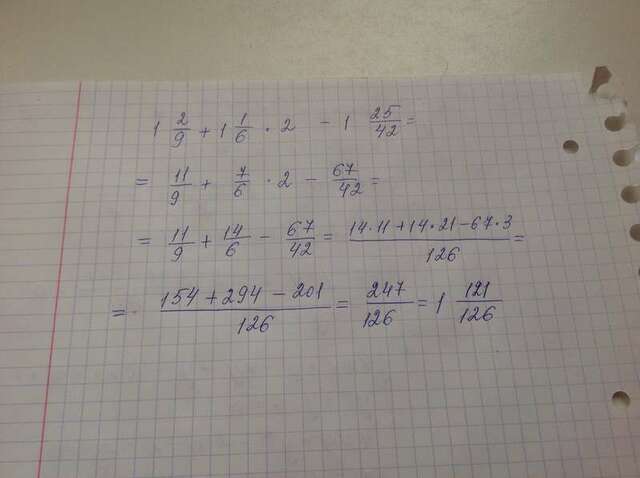 1 2/9 + 1 1/6 · 2 - 1 25/42 =
= 11/9 + 7/6 · 2 - 67/42 =
= 11/9 + 14/6 - 67/42 = (14·11 + 14·21 - 67·3)/126 =
= (154 + 294 - 201)/126 = 247/126 = 1 121/126